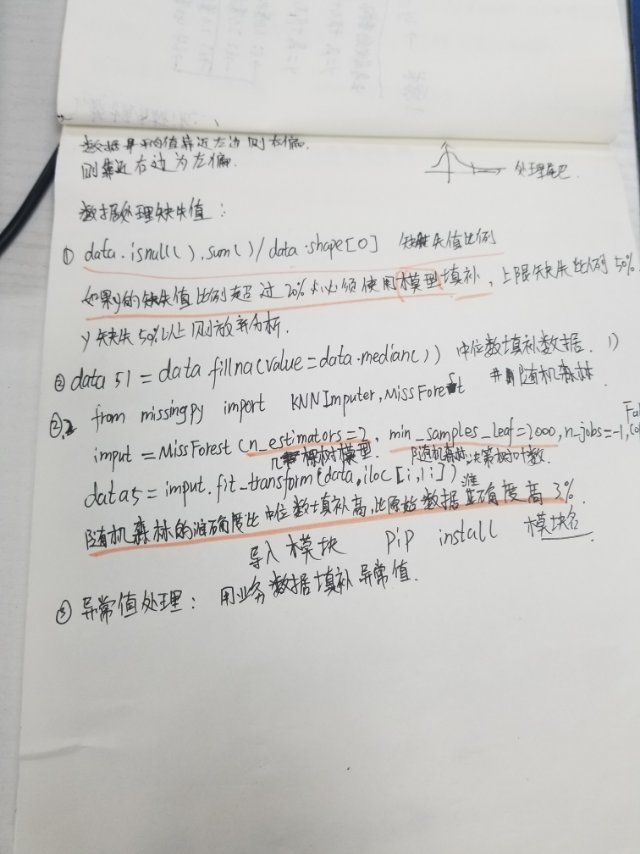 数据平均值靠近左边则右偏.
则靠近右边为左偏.
处理尾巴.
数据处理缺失值：
① data.isnull().sum()/data.shape[0] 缺失值比例
如果y的缺失值比例超过20%必须使用模型填补，上限缺失比例50%
y缺失50%以上则放弃分析.
② data51=data.fillna(value=data.median()) 中位数填补数据. 1)
②.2 from missingpy import KNNImputer,MissForest #随机森林
imput=MissForest(n_estimators=2, min_samples_leaf=2000,n_jobs=-1,
几棵树模型. 随机森林决策树叶数.
data5=imput.fit_transform(data.iloc[:,1:])
随机森林的准确度比中位数填补高,比原始数据准确度高3%
导入模块 pip install 模块名
③ 异常值处理：用业务数据填补异常值.